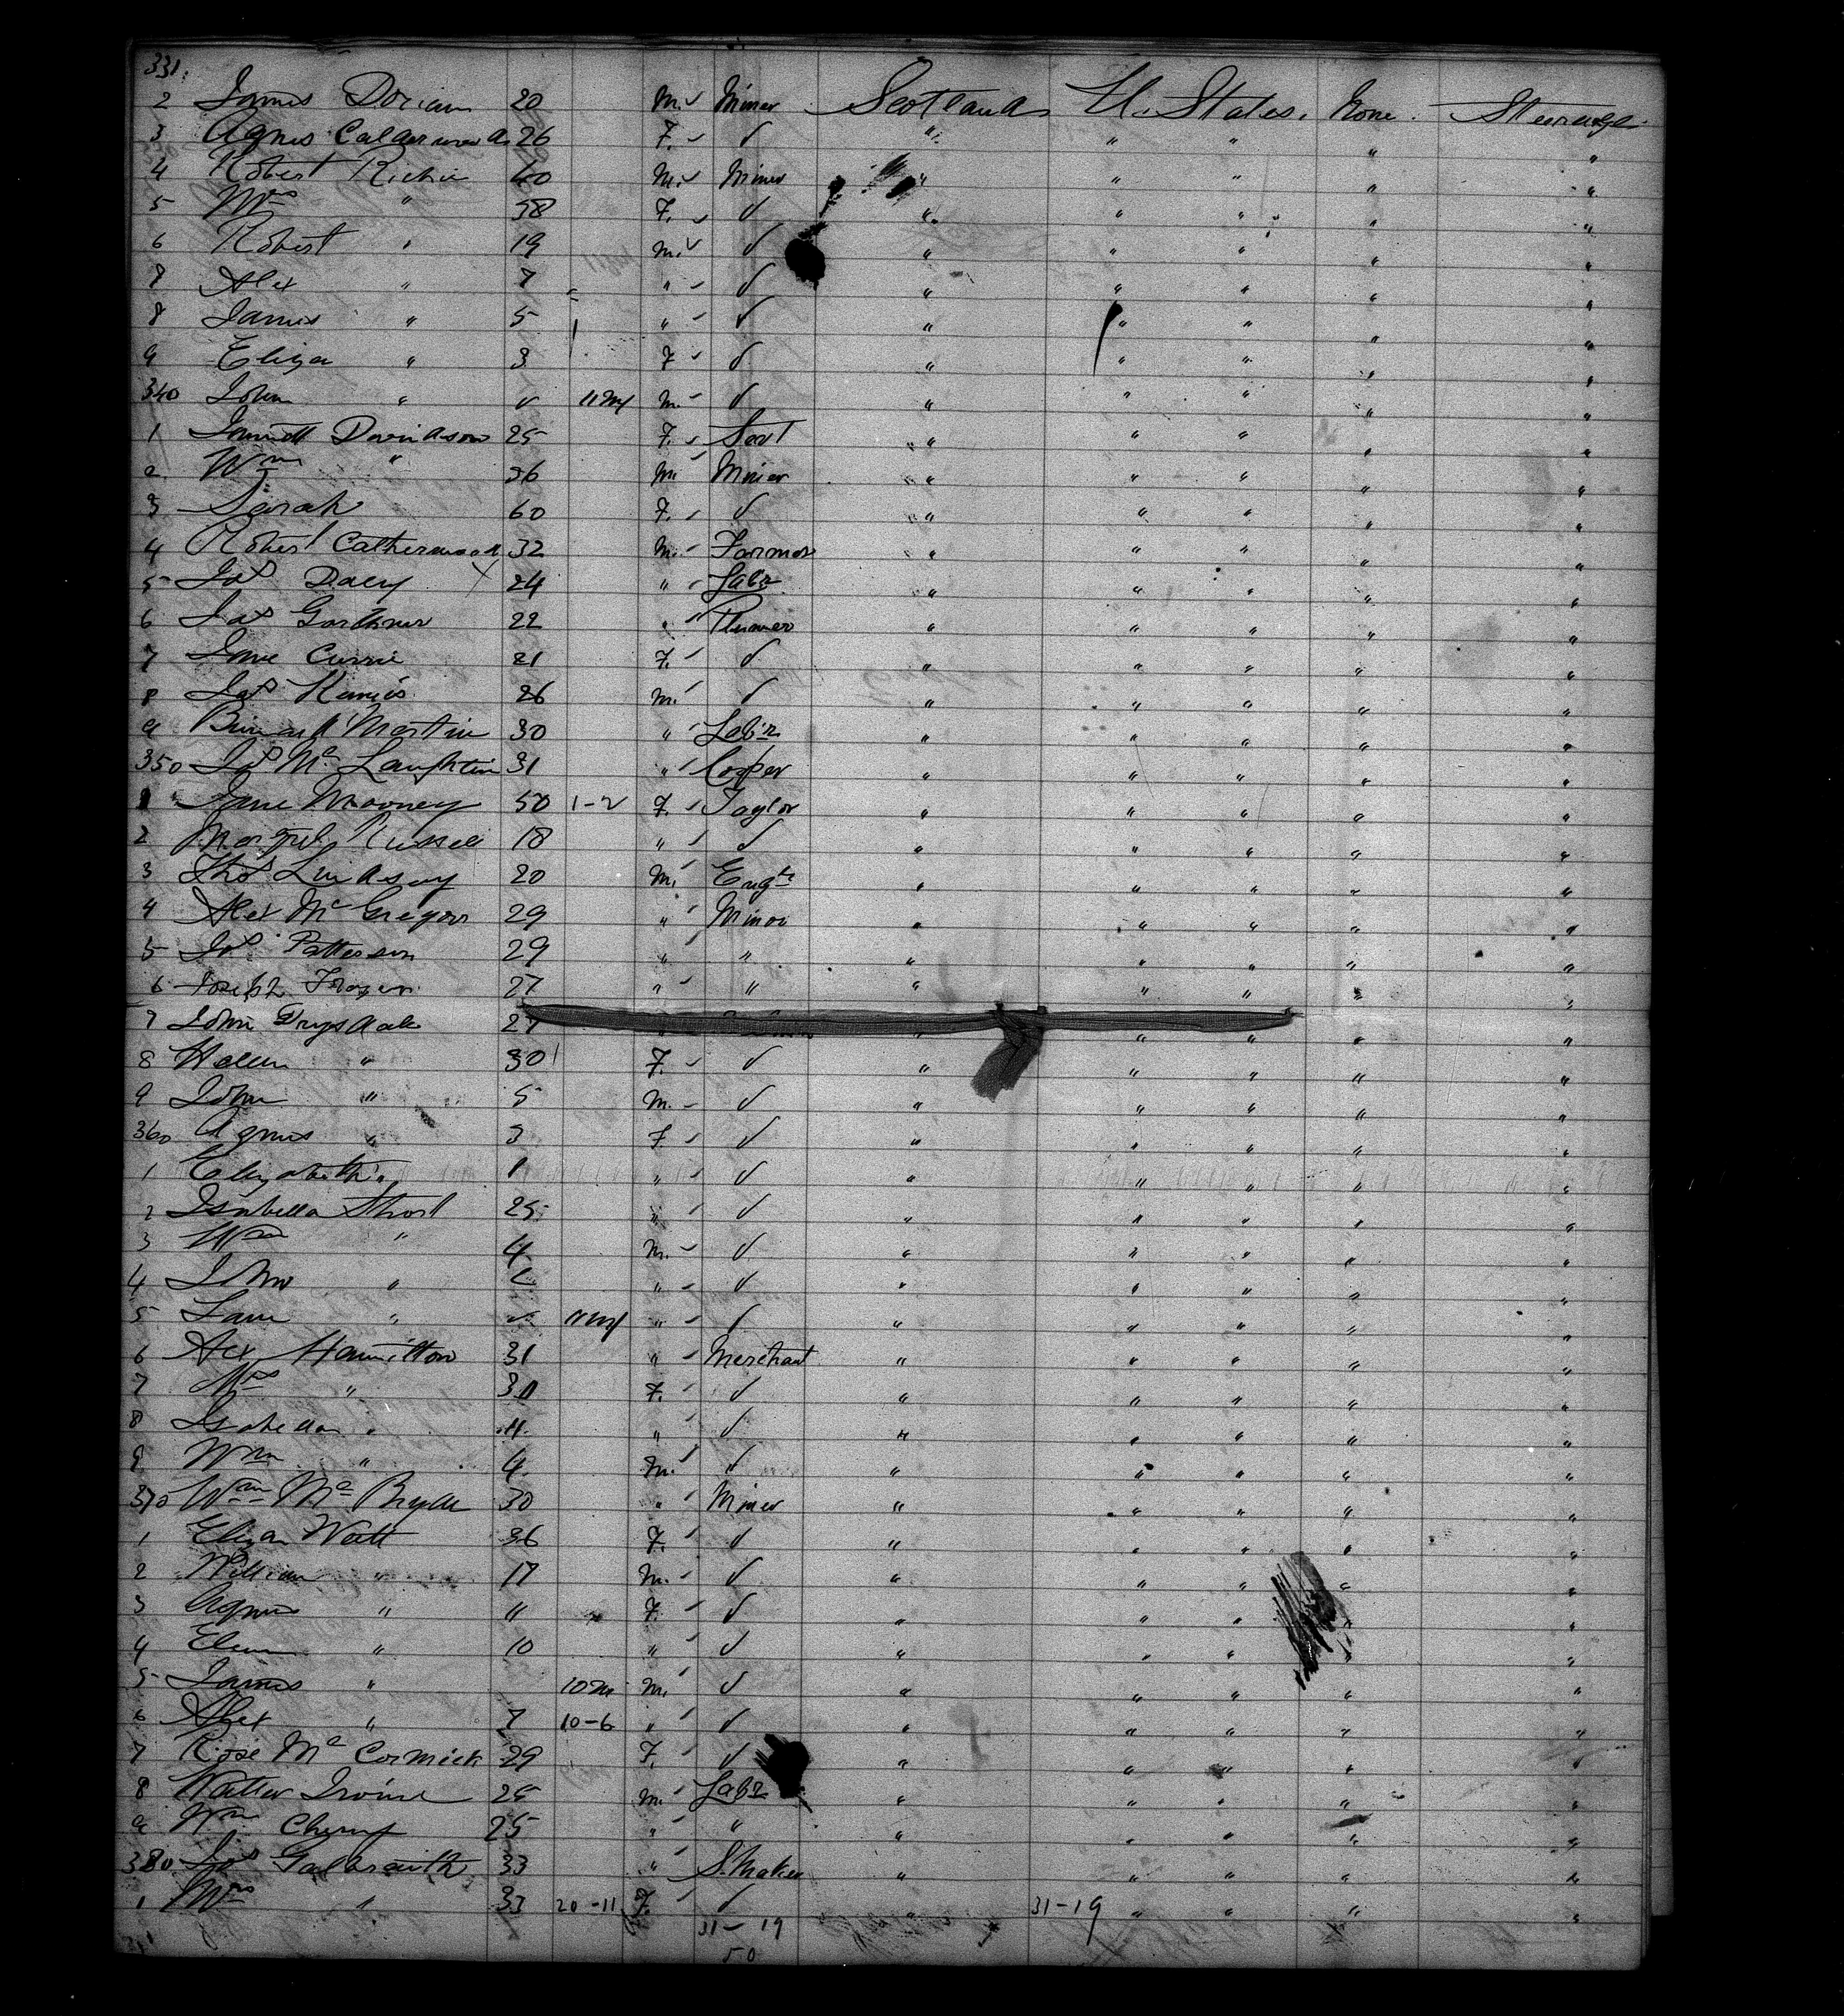 331.
2 James Dorian 20 M. ✓ Miner Scotland U. States. None. Steerage.
3 Agnes Calderwood 26 F. ✓ " " " " "
4 Robert Richie 40 M. Miner " " " " "
5 Mrs " 38 F. ✓ " " " " "
6 Robert " 19 M. ✓ " " " " "
7 Alex " 7 " ✓ " " " " "
8 James " 5 " ✓ " " " " "
9 Eliza " 3 F ✓ " " " " "
340 John " ✓ 11 M M. ✓ " " " " "
1 Davidson 25 F. Servt " " " " "
2 Wm " 26 M. Miner " " " " "
3 Sarah 60 F. ✓ " " " " "
4 Robert Catherwood 32 M. Farmer " " " " "
5 Jas Dacy X 24 " Labr " " " " "
6 Jas Gardner 22 " " " " " "
7 Jane Currie 21 F. ✓ " " " " "
8 Jas 26 M. ✓ " " " " "
9 Martin 30 " Labr " " " " "
350 Jas Mc Laughlin 31 " Cooper " " " " "
1 Jane Mooney 50 1-2 F. Taylor " " " " "
2 Margt Russell 18 " ✓ " " " " "
3 Thos Lindsay 20 M. Engr " " " " "
4 Alex Mc Gregor 29 " Miner " " " " "
5 Jas Patterson 29 " " " " " " "
6 Joseph Frazer 27 " " " " " " "
7 John Drysdale 27 " " " " "
8 Helen " 30 F. ✓ " " " " "
9 John " 5 M. ✓ " " " " "
360 Agnes " 3 F ✓ " " " " "
1 Elizabeth " 1 " ✓ " " " " "
2 Isabella Short 25 " ✓ " " " " "
3 Wm " 4 M. ✓ " " " " "
4 John " " ✓ " " " " "
5 Jane " ✓ 11 M " ✓ " " " " "
6 Alex Hamilton 31 " Merchant " " " " "
7 Mrs " 30 F. ✓ " " " " "
8 Isabella " 11 " ✓ " " " " "
9 Wm " 4 M. ✓ " " " " "
370 Wm Mc Bryde 30 " Miner " " " " "
1 Eliza Watt 36 F. ✓ " " " " "
2 William " 17 M. ✓ " " " " "
3 Agnes " " F. ✓ " " " " "
4 Ellen " 10 " ✓ " " " " "
5 James " 10 M M. ✓ " " " " "
6 Alex " 7 10-6 " ✓ " " " " "
7 Rose Mc Cormick 29 F. ✓ " " " " "
8 Walter Irvine 25 M. Labr " " " " "
9 Wm 25 " " " " " " "
380 Jas Galbraith 33 " S. Maker " " " " "
1 Mrs " 33 20-11 F. ✓ " 31-19 " " " "
31-19
50